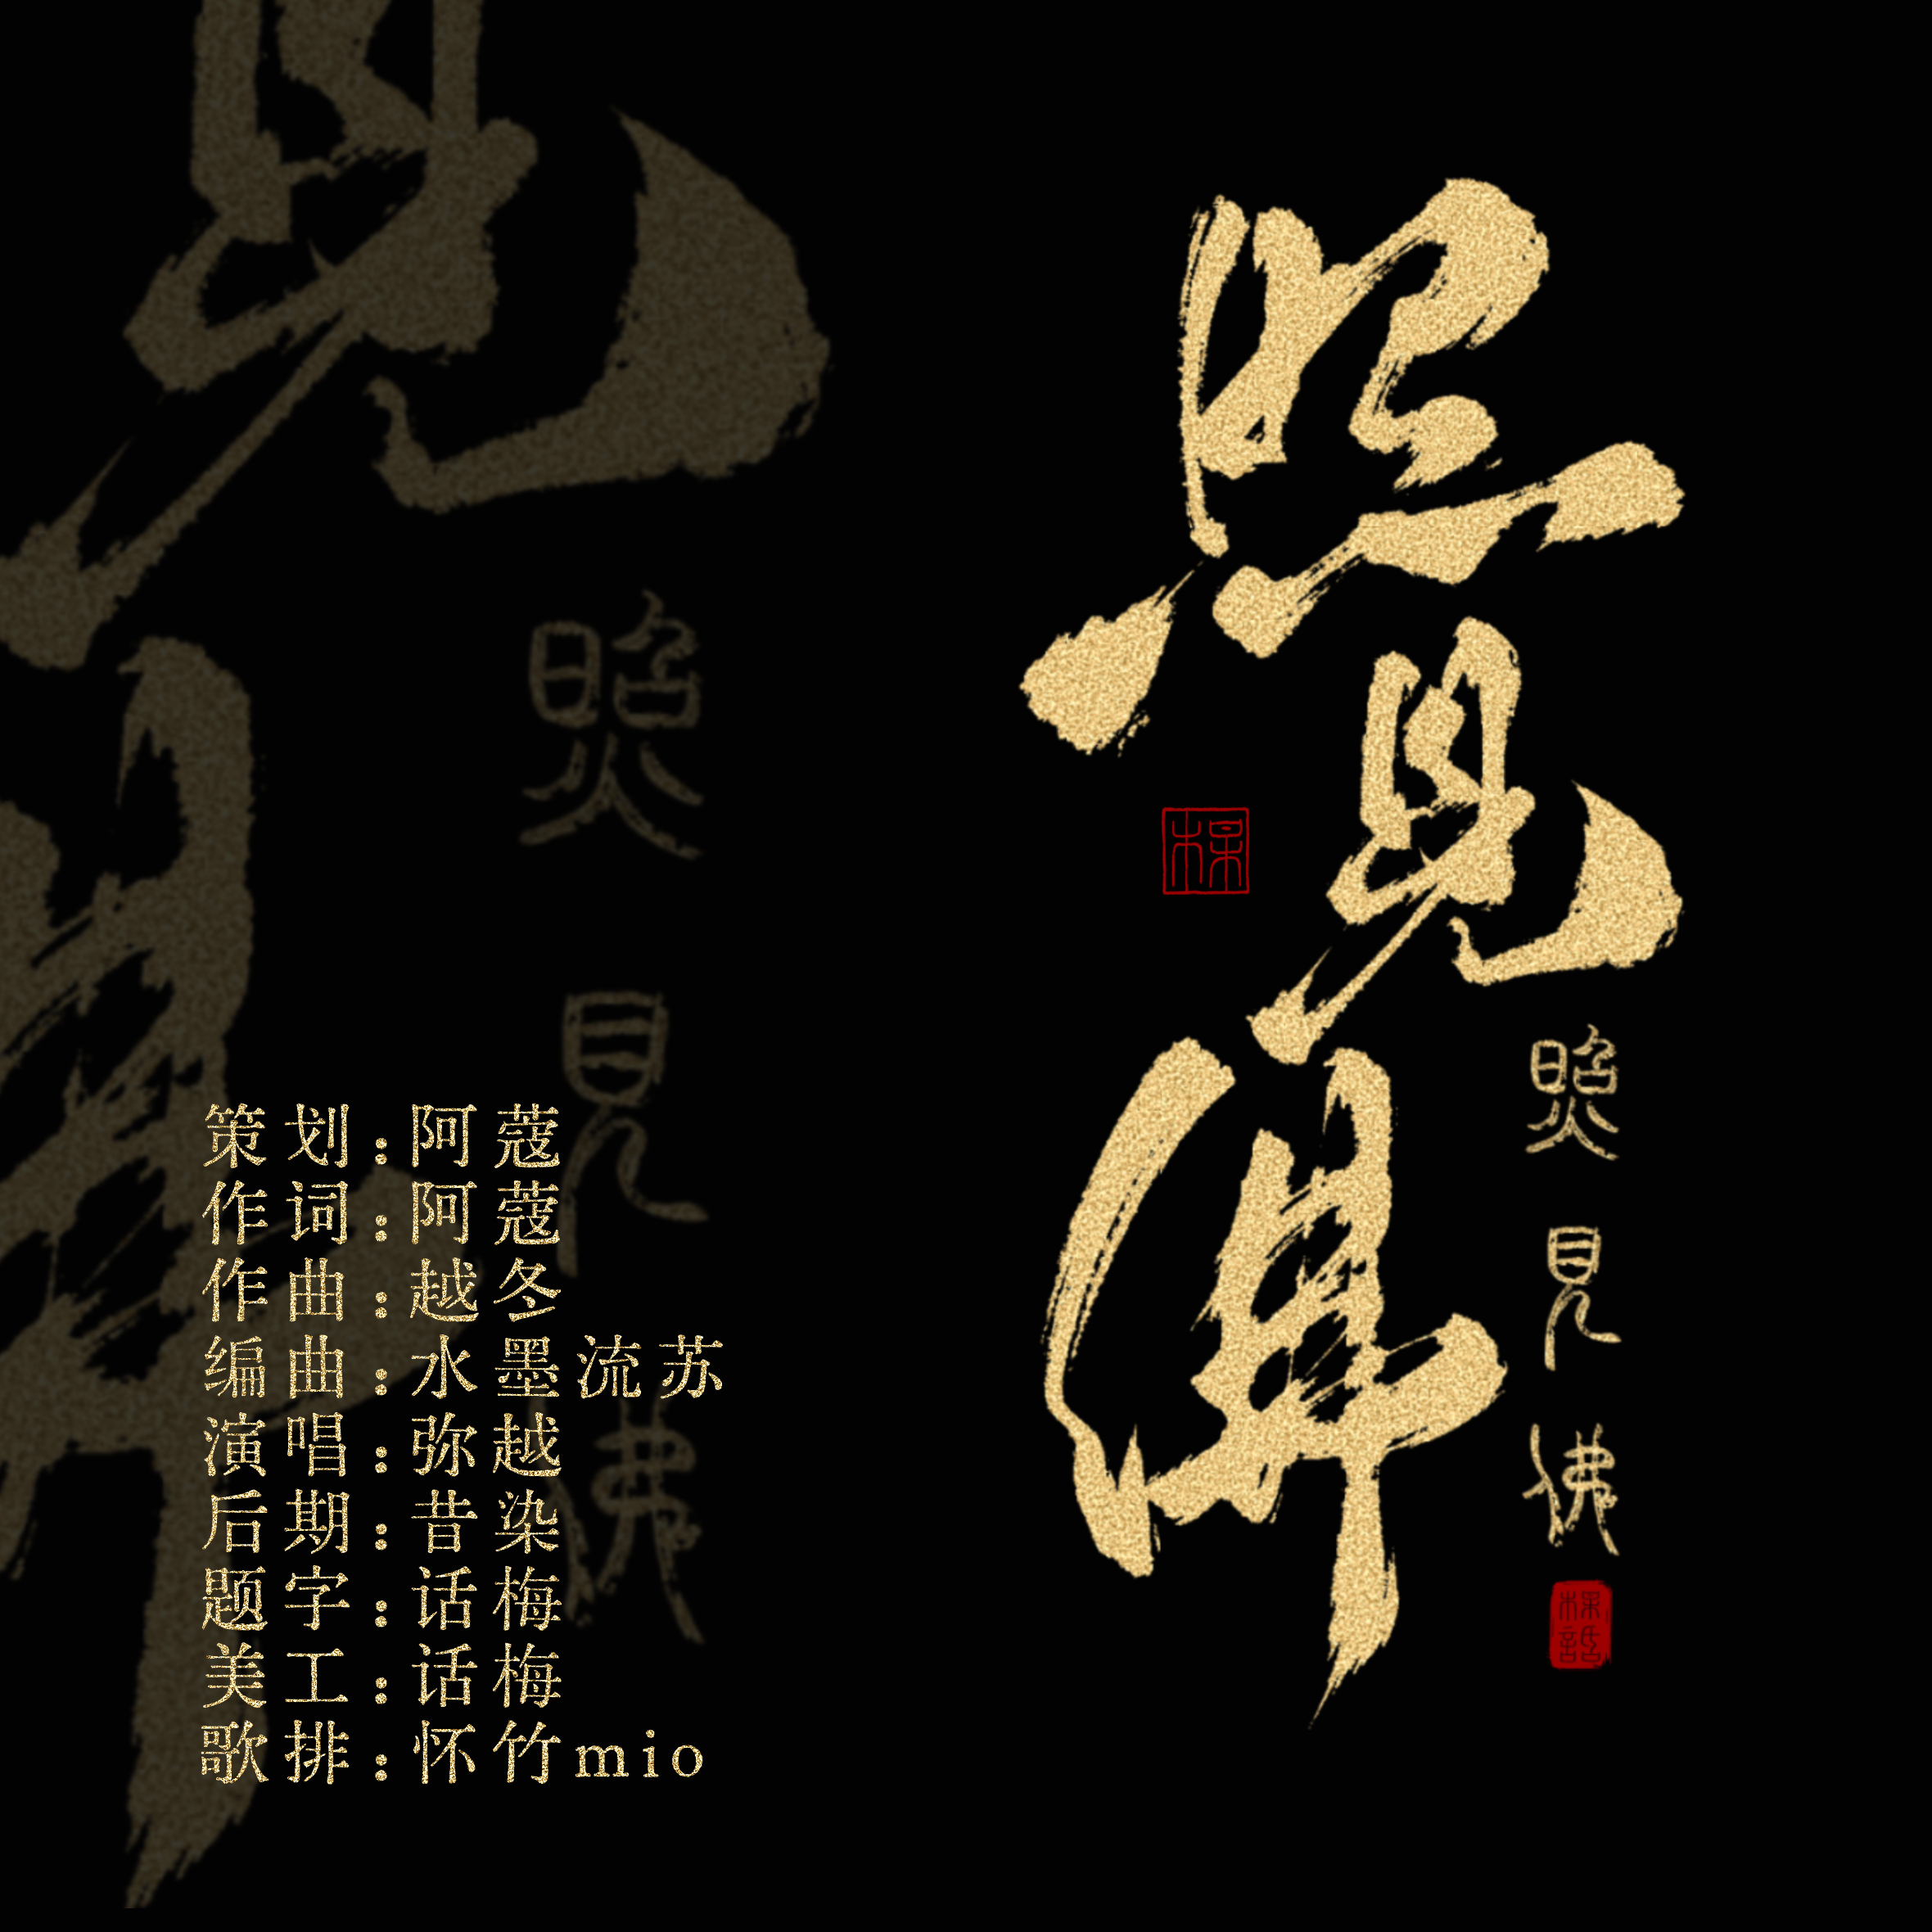 照見佛
照見佛
策划:阿蔻
作词:阿蔻
作曲:越冬
编曲:水墨流苏
演唱:弥越
后期:昔染
题字:话梅
美工:话梅
歌排:怀竹mio